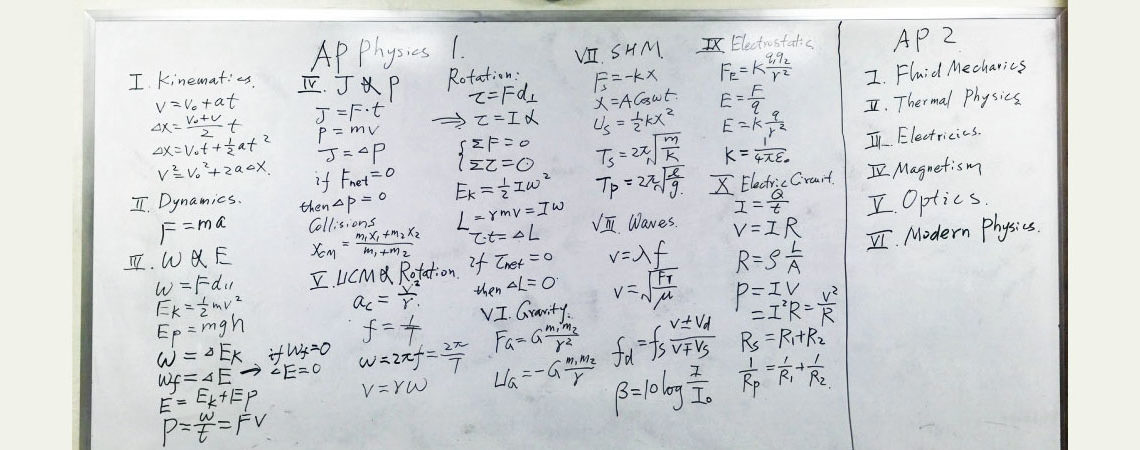 AP Physics 1.
I. Kinematics.
v = v₀ + at
Δx = (v₀+v)/2 t
Δx = v₀t + ½at²
v² = v₀² + 2aΔx.
II. Dynamics.
F = ma
IV. W & E
W = Fd∥
E_K = ½mv²
E_P = mgh
W = ΔE_K
W_f = ΔE → if W_f = 0 ΔE = 0
E = E_K + E_P
P = W/t = FV
IV. J & P
J = F·t
P = mv
J = ΔP
if F_net = 0
then ΔP = 0
Collisions
X_CM = (m₁x₁+m₂x₂)/(m₁+m₂)
V. UCM & Rotation.
a_c = v²/r.
f = 1/T
ω = 2πf = 2π/T
v = rω
Rotation:
τ = Fd⊥
⇒ τ = Iα
{ ΣF = 0
Στ = 0
E_K = ½Iω²
L = rmv = Iω
τ·t = ΔL
if τ_net = 0
then ΔL = 0
VI. Gravity.
F_G = G m₁m₂/r²
U_G = -G m₁m₂/r
VII. SHM
F_s = -kx
X = A cos ωt.
U_s = ½kx²
T_s = 2π√(m/k)
T_P = 2π√(ℓ/g)
VIII. Waves.
v = λf
v = √(F_T/μ)
f_d = f_s (v±v_d)/(v∓v_s)
β = 10 log I/I₀
IX Electrostatic
F_E = K q₁q₂/r²
E = F/q
E = K q/r²
K = 1/4πε₀
X Electric Circuit.
I = Q/t
V = IR
R = ρ L/A
P = IV
= I²R = V²/R
R_s = R₁+R₂
1/R_p = 1/R₁ + 1/R₂
AP 2
I. Fluid Mechanics
II. Thermal Physics
III. Electricics.
IV. Magnetism
V. Optics.
VI. Modern Physics.